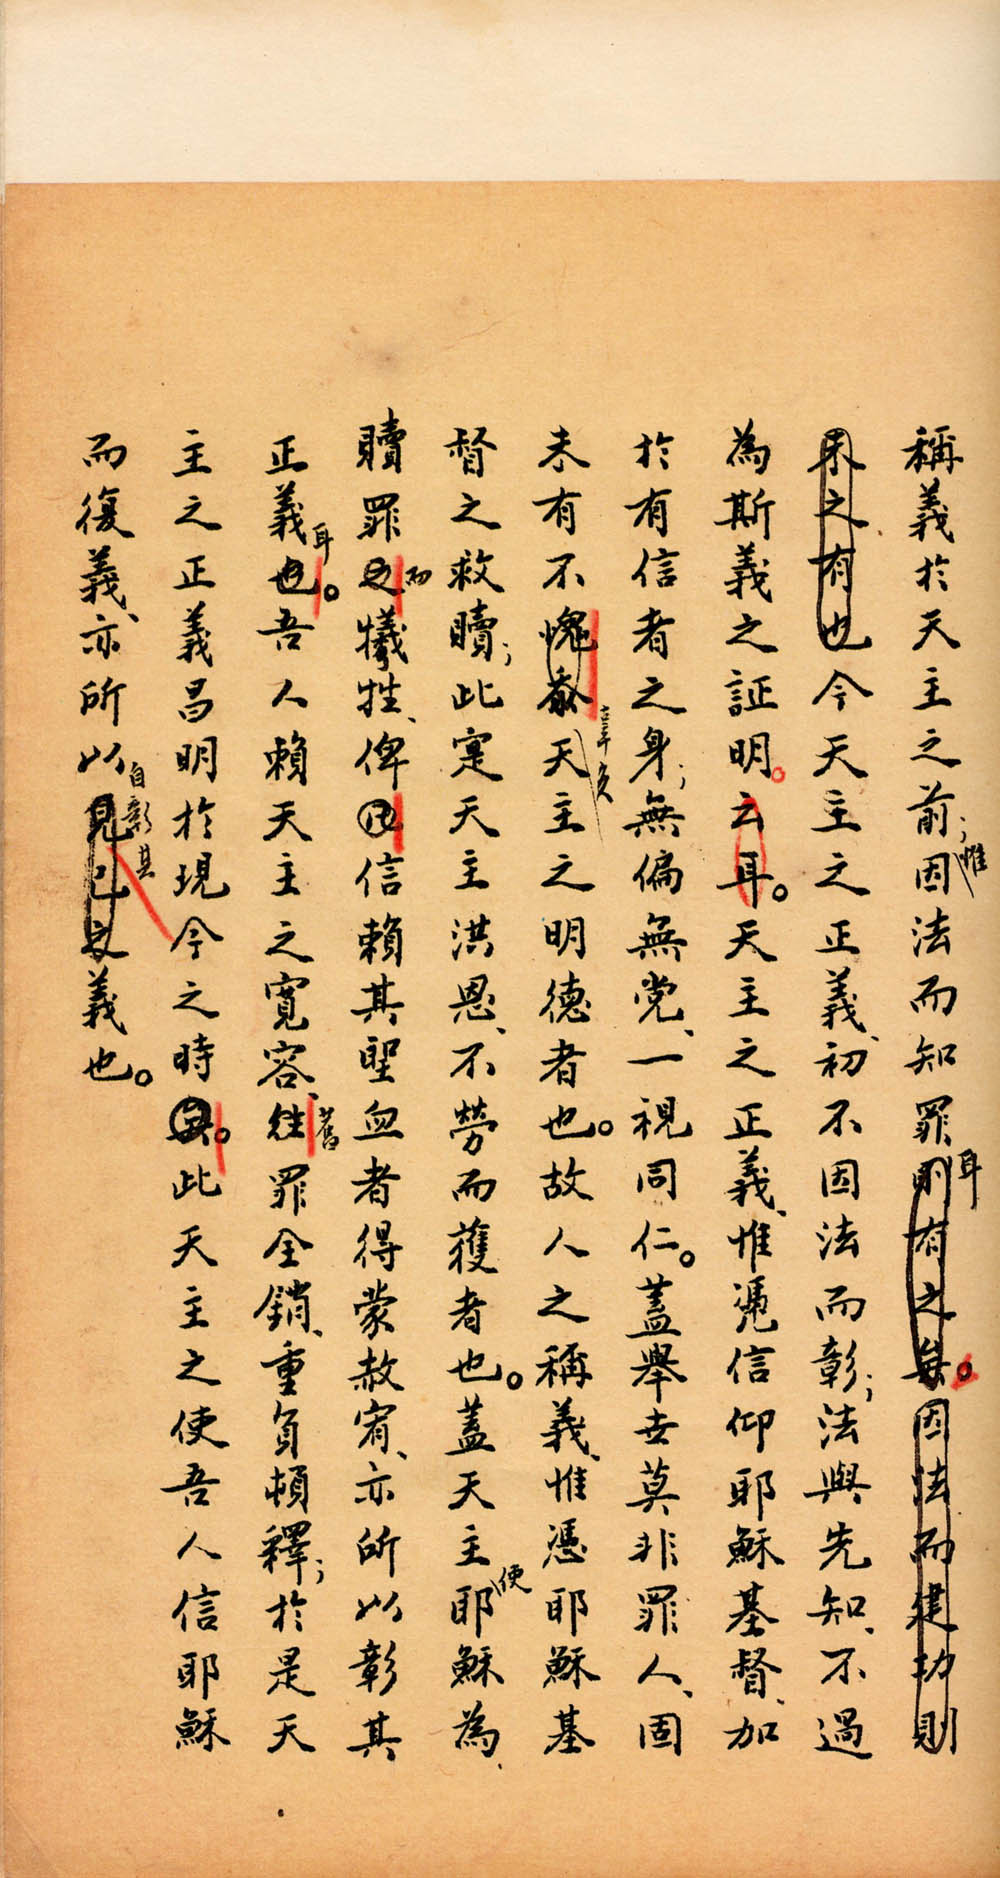 稱義於天主之前；惟因法而知罪耳則有之矣。因法而建功則
未之有也今天主之正義、初不因法而彰；法與先知、不過
為斯義之証明。云耳。天主之正義、惟憑信仰耶穌基督、加
於有信者之身；無偏無党、一視同仁。蓋舉世莫非罪人、固
未有不愧辜負天主之明德者也。故人之稱義、惟憑耶穌基
督之救贖；此寔天主洪恩、不勞而獲者也。蓋天主使耶穌為
贖罪之而犧牲、俾信賴其聖血者得蒙赦宥、亦所以彰其
正義也耳。吾人賴天主之寬容、往舊罪全銷、重負頓釋；於是天
主之正義昌明於現今之時。此天主之使吾人信耶穌
而復義、亦所以自彰其見己之義也。